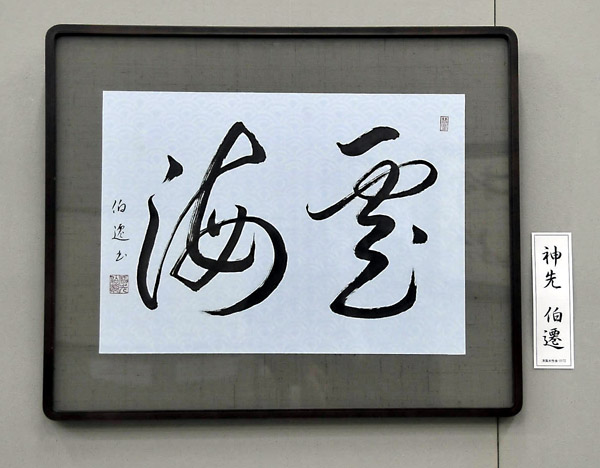 雲海
伯遷書
神先 伯遷